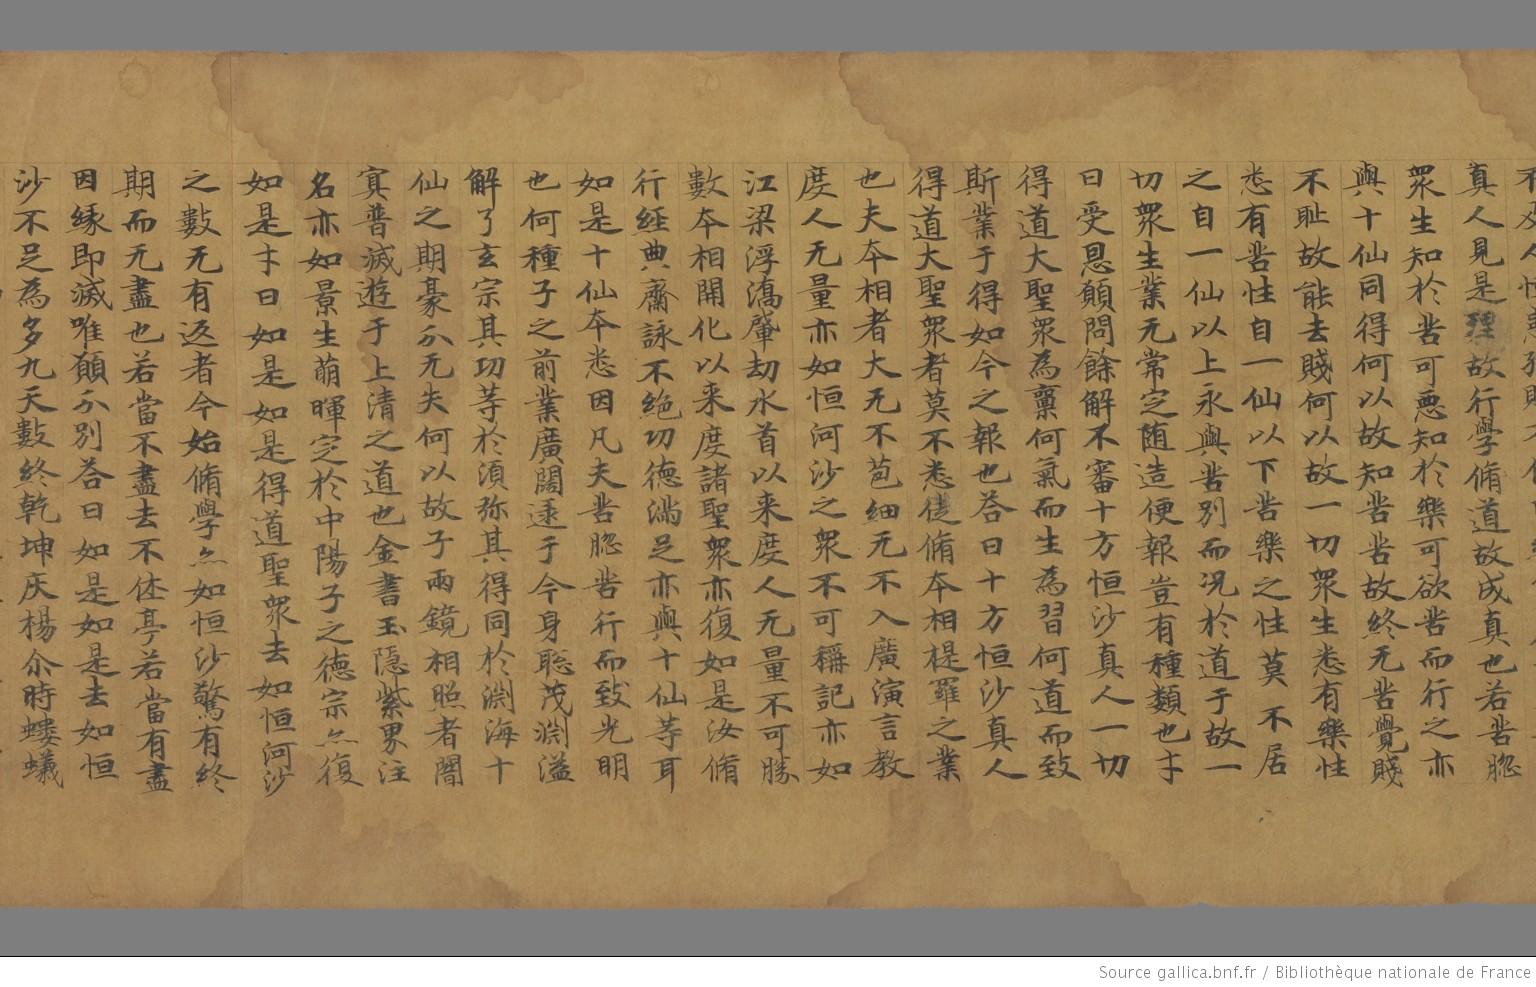 真人見是理故行學脩道故成真也若苦惱
衆生知於苦可惡知於樂可欲苦而行之亦
與十仙同得何以故知苦苦故終无苦覺賤
不恥故能去賤何以故一切衆生悉有樂性
悉有苦性自一仙以下苦樂之性莫不居
之自一仙以上永與苦別而况於道于故一
切衆生業无常定随造便報豈有種類也
曰受恩願問餘解不審十方恒沙真人一切
得道大聖衆為稟何氣而生為習何道而致
斯業于得如今之報也荅曰十方恒沙真人
得道大聖衆者莫不悉從脩夲相提羅之業
也夫夲相者大无不苞細无不入廣演言教
度人无量亦如恒河沙之衆不可稱記亦如
江梁浮潏肇劫水首以来度人无量不可勝
數夲相開化以来度諸聖衆亦復如是汝脩
行經典齋詠不絶功德滿足亦與十仙等耳
如是十仙夲悉因凡夫苦惱苦行而致光明
也何種子之前業廣闊逺于今身聡茂淵溢
解了玄宗其功等於湏弥其得同於淵海十
仙之期豪尒无失何以故子兩鏡相照者闇
寘普滅遊于上清之道也金書玉隱紫界注
名亦如景生萠暉定於中陽子之德宗亦復
如是 曰如是如是得道聖衆去如恒河沙
之數无有返者今始脩學亦如恒沙驚有終
期而无盡也若當不盡去不㑽亭若當有盡
因緣即滅唯願尒別荅曰如是如是去如恒
沙不足為多九天數終乾坤灰楊尒時螻蟻